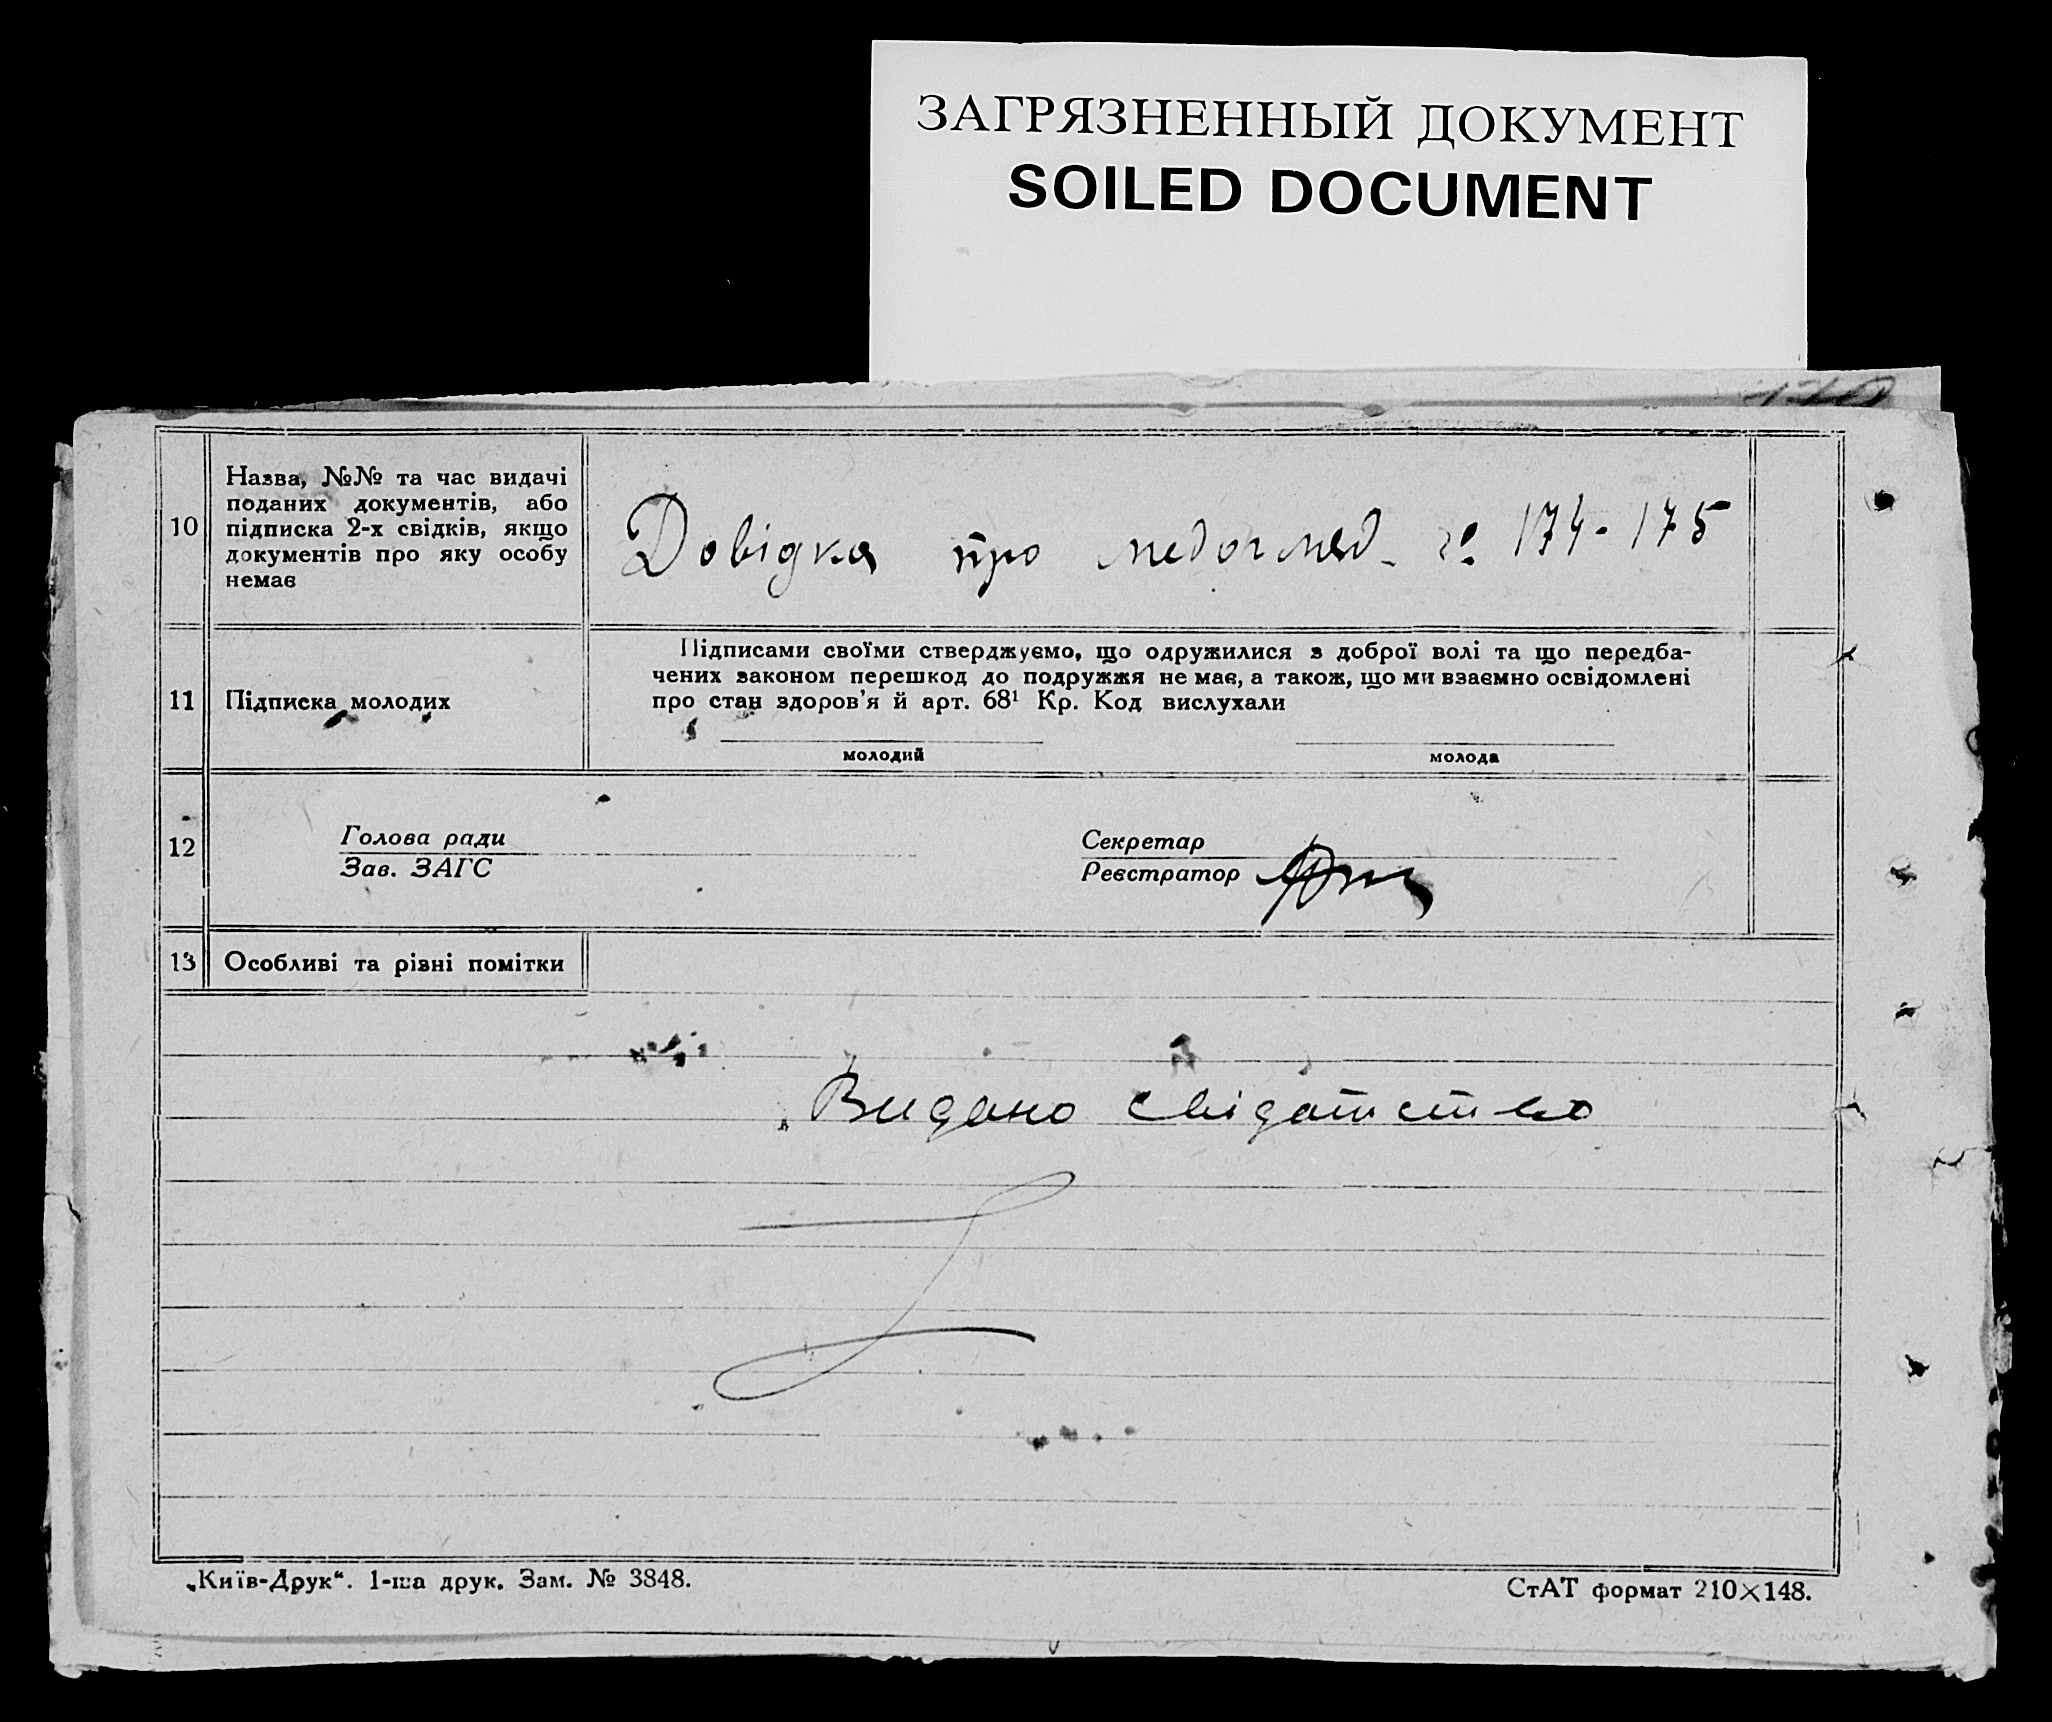 ЗАГРЯЗНЕННЫЙ ДОКУМЕНТ
SOILED DOCUMENT
10
Назва, №№ та час видачі
поданих документів, або
підписка 2-х свідків, якщо
документів про яку особу
немає
Довідка про медогляд. № 174-175
11
Підписка молодих
Підписами своїми стверджуємо, що одружилися з доброї волі та що передба-
чених законом перешкод до подружжя не має, а також, що ми взаємно освідомлені
про стан здоров'я й арт. 68¹ Кр. Код вислухали
молодий
молода
12
Голова ради
Зав. ЗАГС
Секретар
Реєстратор
13
Особливі та різні помітки
Видано свідатство
„Київ-Друк“. 1-ша друк. Зам. № 3848.
СтАТ формат 210×148.